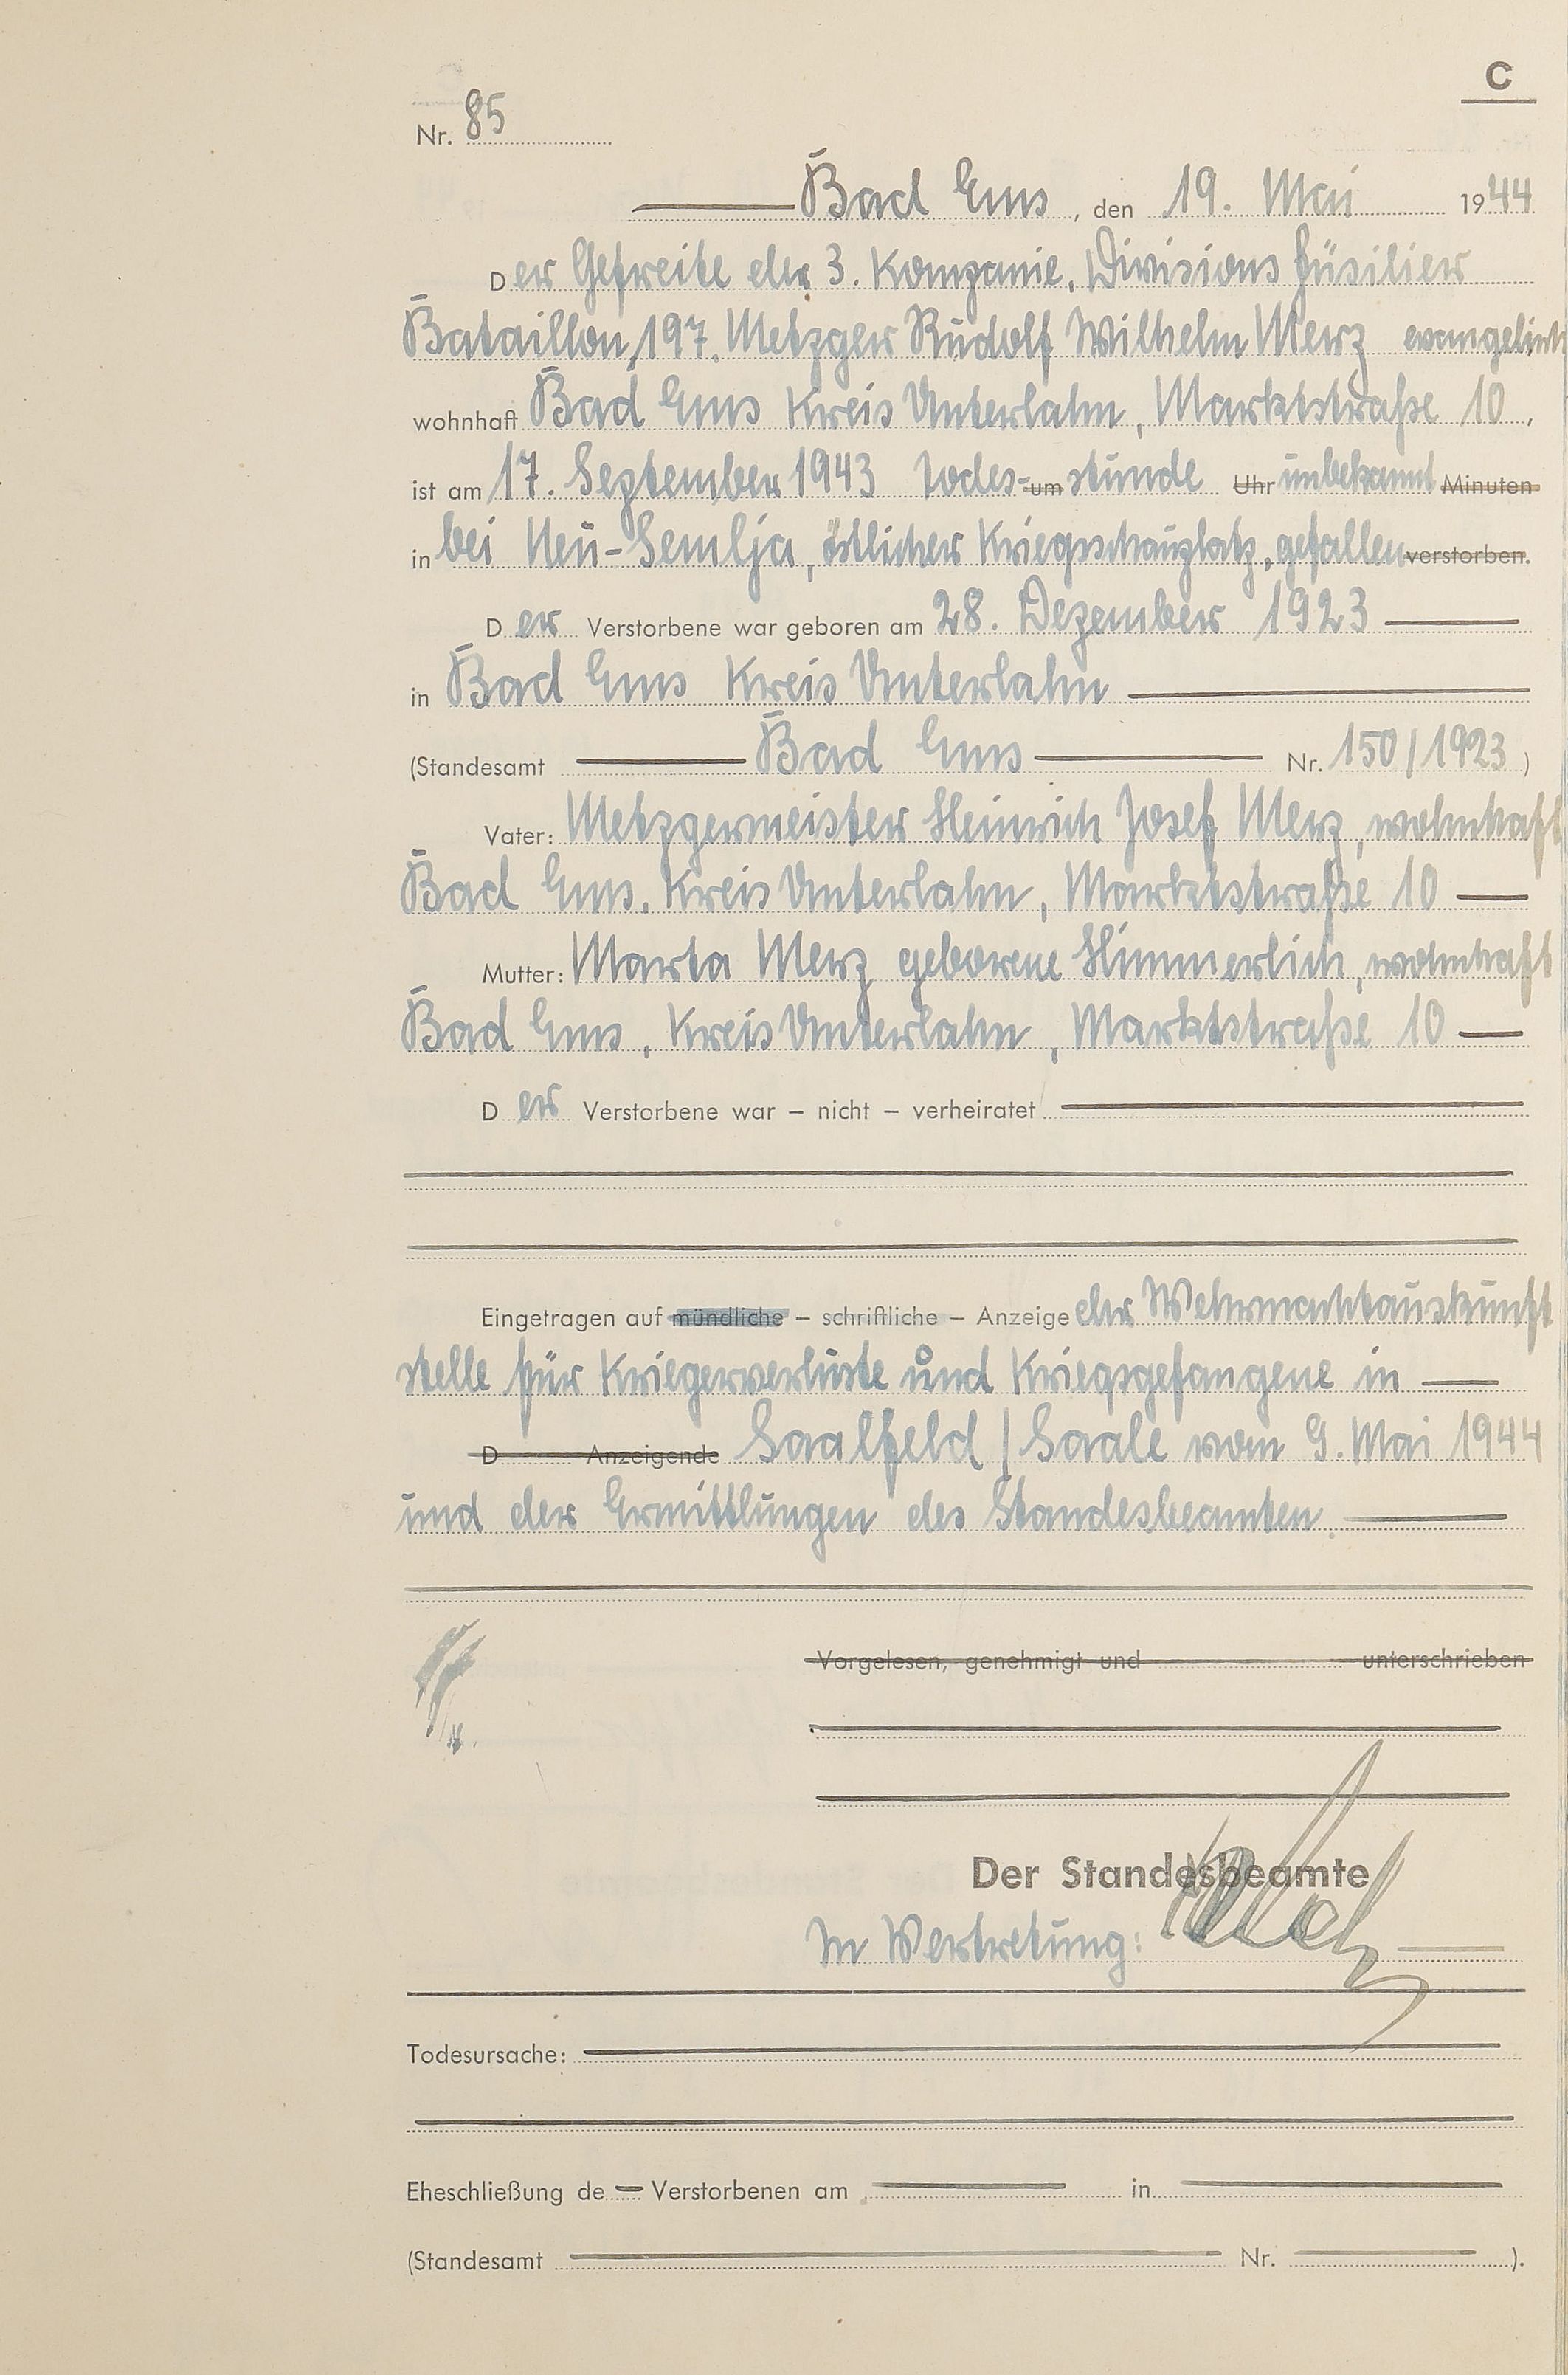 C
Nr. 85
Bad Ems, den 19. Mai 1944
Der Gefreite der 3. Kompanie, Divisions Füsilier
Bataillon, 197. Metzger Rudolf Wilhelm Merz evangelisch
wohnhaft Bad Ems Kreis Unterlahn, Marktstraße 10,
ist am 17. September 1943 Todes- um stunde Uhr unbekannt Minuten
in bei Neu-Semlja, östlicher Kriegsschauplatz, gefallen verstorben.
Der Verstorbene war geboren am 28. Dezember 1923
in Bad Ems Kreis Unterlahn
(Standesamt Bad Ems Nr. 150/1923)
Vater: Metzgermeister Heinrich Josef Merz, wohnhaft
Bad Ems, Kreis Unterlahn, Marktstraße 10
Mutter: Marta Merz geborene Himmerlich, wohnhaft
Bad Ems, Kreis Unterlahn, Marktstraße 10
Der Verstorbene war – nicht – verheiratet
Eingetragen auf mündliche – schriftliche – Anzeige der Wehrmachtauskunft
stelle für Kriegerverluste und Kriegsgefangene in
D Anzeigende Saalfeld / Saale vom 9. Mai 1944
und der Ermittlungen des Standesbeamten.
Vorgelesen, genehmigt und unterschrieben
Der Standesbeamte
In Vertretung:
Todesursache:
Eheschließung de Verstorbenen am in
(Standesamt Nr. ).